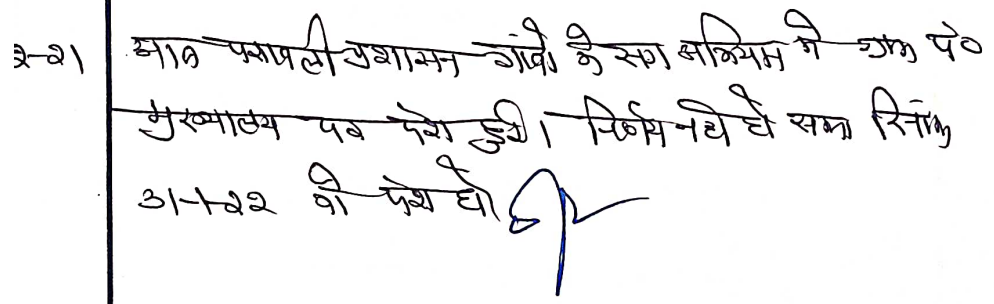 2-21 आज पत्रावली प्रशासन गांवो के संग अभियान मे ग्राम पं०
मुख्यालय पर पेश हुई। निर्णय नही हो सका दिनांक
31-1-22 को पेश हो